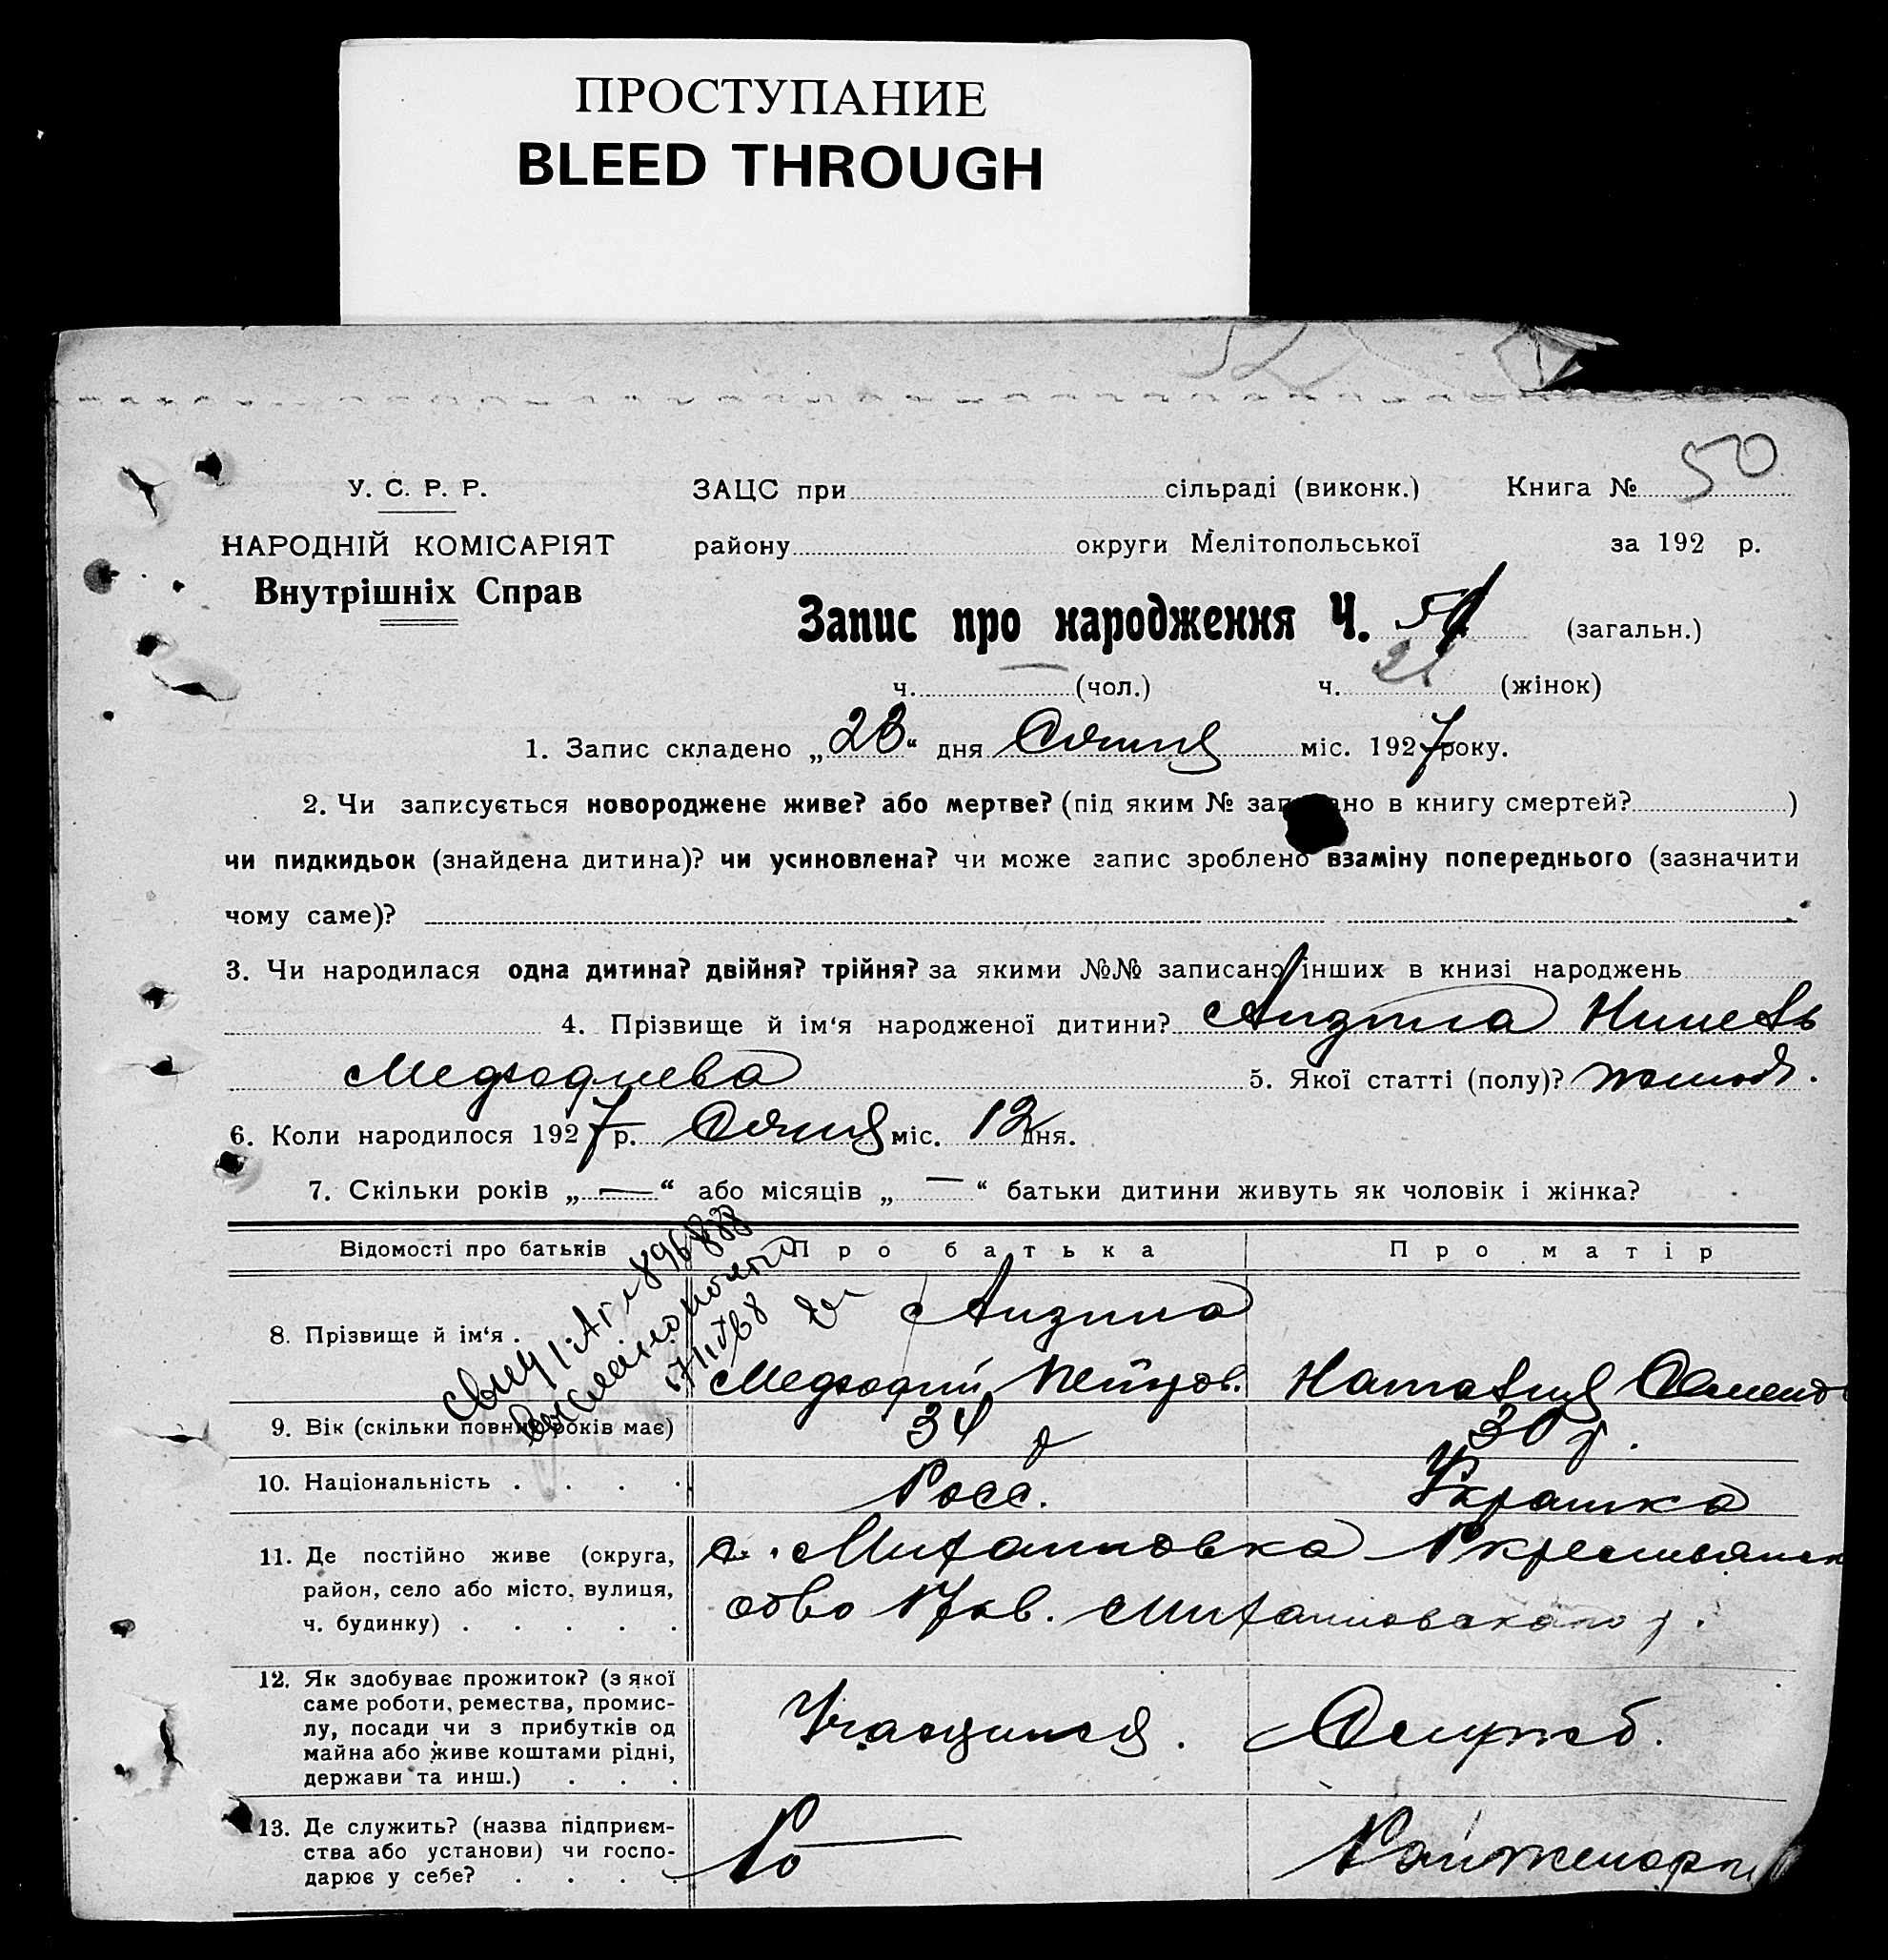 ПРОСТУПАНИЕ
BLEED THROUGH
52
50
У. С. Р. Р.
ЗАЦС при сільраді (виконк.) Книга №
НАРОДНІЙ КОМІСАРІЯТ
району округи Мелітопольської за 192 р.
Внутрішніх Справ
Запис про народження Ч. 51 (загальн.)
ч. — (чол.) ч. 21 (жінок)
1. Запис складено „23“ дня Січня міс. 1927 року.
2. Чи записується новороджене живе? або мертве? (під яким № записано в книгу смертей? )
чи пидкидьок (знайдена дитина)? чи усиновлена? чи може запис зроблено взаміну попереднього (зазначити
чому саме)?
3. Чи народилася одна дитина? двійня? трійня? за якими №№ записано інших в книзі народжень
4. Прізвище й ім‘я народженої дитини? Нинель
5. Якої статті (полу)?
6. Коли народилося 1927 р. Січня міс. 12 дня.
7. Скільки років „—“ або місяців „—“ батьки дитини живуть як чоловік і жінка?
Відомості про батьків Про батька Про матір
8. Прізвище й ім‘я .
Мефодий Петров. Наталия
9. Вік (скільки повних років має) 34 г 30 г.
10. Національність . . . . Росс. Украинка
11. Де постійно живе (округа, район, село або місто, вулиця, ч. будинку) . . . . .
с. Михайловка
Михайловского р.
12. Як здобуває прожиток? (з якої саме роботи, ремества, промислу, посади чи з прибутків од майна або живе коштами рідні, держави та инш.) . . .
Учащийся. Служб.
13. Де служить? (назва підприємства або установи) чи господарює у себе? . . . .